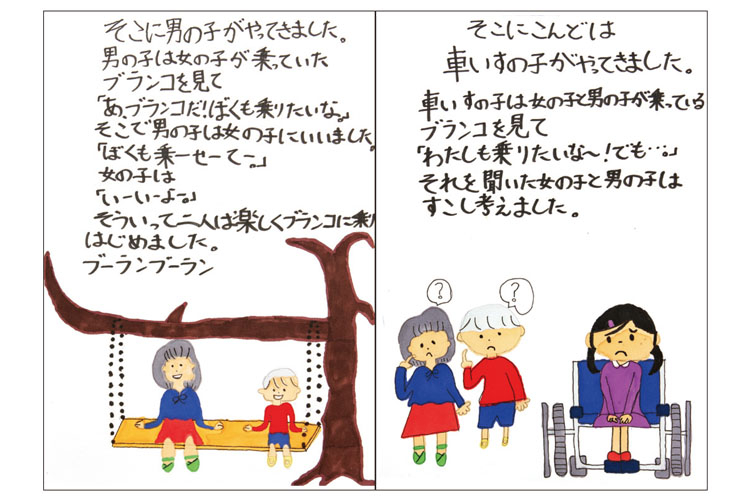 そこに男の子がやってきました。
男の子は女の子が乗っていた
ブランコを見て
「あ、ブランコだ!ぼくも乗りたいな。」
そこで男の子は女の子にいいました。
「ぼくも乗ーせーてー。」
女の子は
「いーいーよー。」
そういって二人は楽しくブランコに乗り
はじめました。
ブーランブーラン
そこにこんどは
車いすの子がやってきました。
車いすの子は女の子と男の子が乗っている
ブランコを見て
「わたしも乗りたいな～!でも…。」
それを聞いた女の子と男の子は
すこし考えました。
?
?